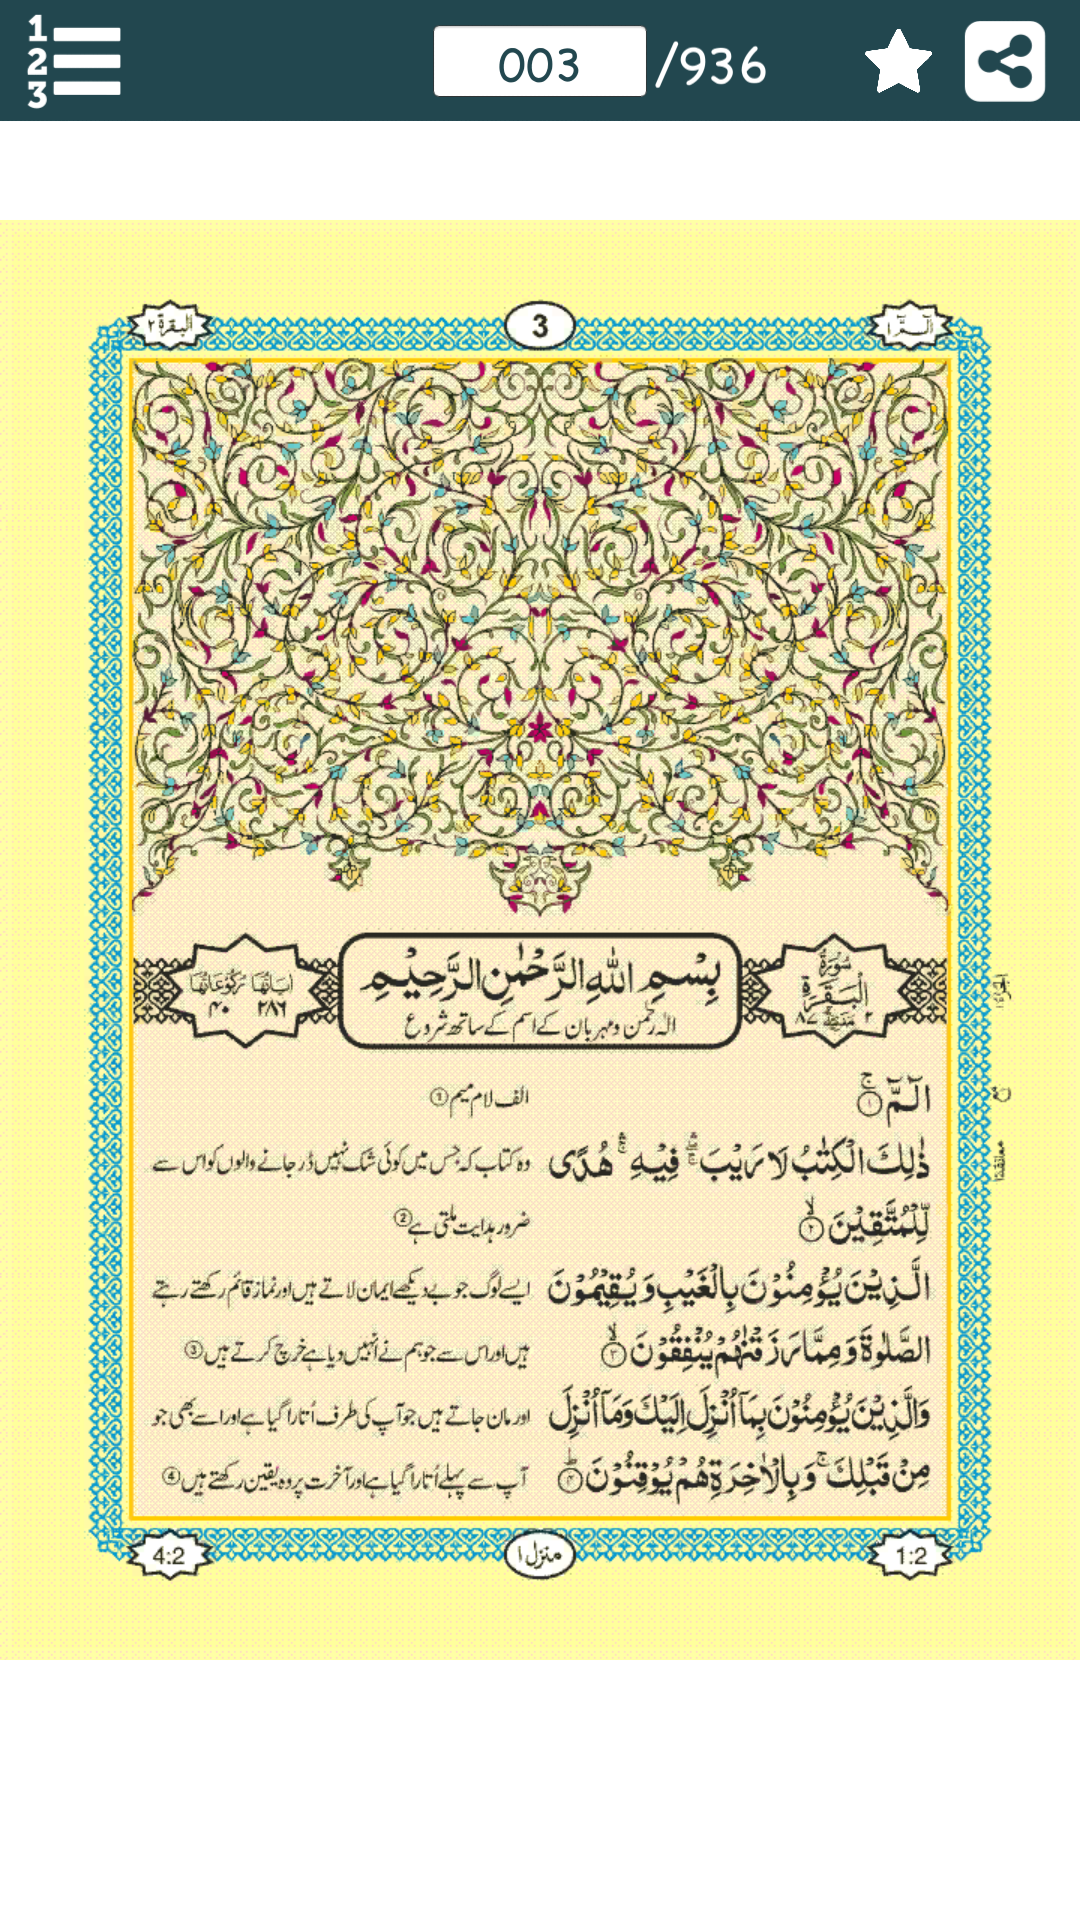 1
2
3
003 /936
البقرة ٢
3
الٓمّٓ ١
اٰیاتُهَا ٢٨٦ رُكُوْعَاتُهَا ۴۰
بِسْمِ اللّٰهِ الرَّحْمٰنِ الرَّحِیْمِ
الٰہ رحمٰن و مہربان کے اسم کے ساتھ شروع
سُوْرَةُ
الْبَقَرَةِ
٢ مَدَنِيَّةٌ ٨٧
الٓمّٓ ۚ ١
الف لام میم 1
ذٰلِكَ الْكِتٰبُ لَا رَیْبَ ۛۚ فِیْهِ ۛۚ هُدًی
وہ کتاب کہ جس میں کوئی شک نہیں ڈر جانے والوں کو اس سے
لِّلْمُتَّقِیْنَ ۙ ٢
ضرور ہدایت ملتی ہے 2
الَّذِیْنَ یُؤْمِنُوْنَ بِالْغَیْبِ وَ یُقِیْمُوْنَ
ایسے لوگ جو بے دیکھے ایمان لاتے ہیں اور نماز قائم رکھتے رہتے
الصَّلٰوةَ وَ مِمَّا رَزَقْنٰهُمْ یُنْفِقُوْنَ ۙ ٣
ہیں اور اس سے جو ہم نے انہیں دیا ہے خرچ کرتے ہیں 3
وَ الَّذِیْنَ یُؤْمِنُوْنَ بِمَاۤ اُنْزِلَ اِلَیْكَ وَ مَاۤ اُنْزِلَ
اور مان جاتے ہیں جو آپ کی طرف اُتارا گیا ہے اور اسے بھی جو
مِنْ قَبْلِكَ ۚ وَ بِالْاٰخِرَةِ هُمْ یُوْقِنُوْنَ ؕ ۴
آپ سے پہلے اُتارا گیا ہے اور آخرت پر وہ یقین رکھتے ہیں 4
4:2
منزل ١
1:2